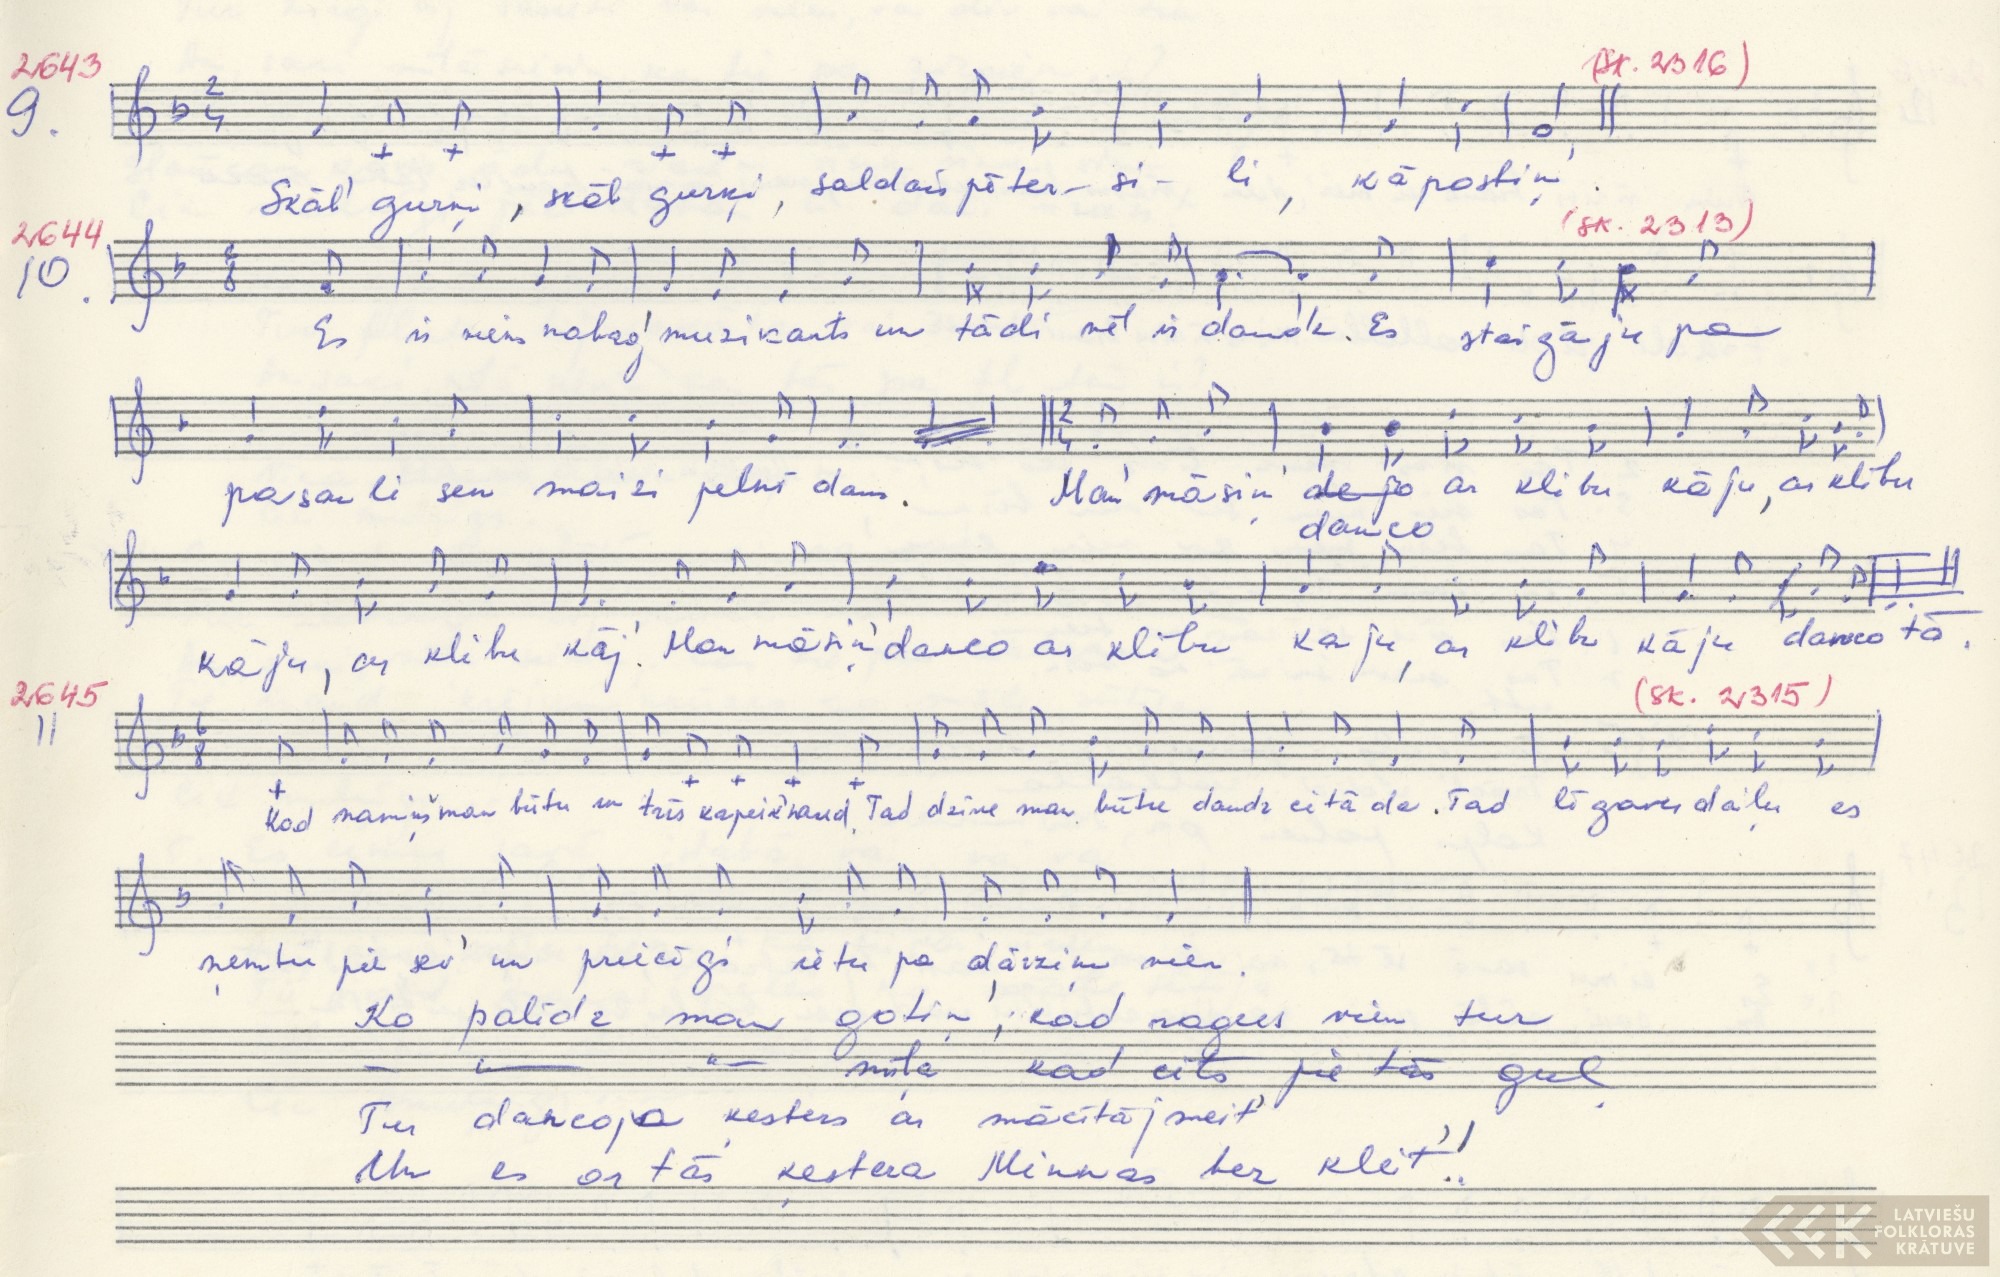 2643
(sk. 2316)
9.
2
4
Skāb' gurķi, skāb gurķi, saldais pēter-si-li, kāpostiņ'.
2644
(sk. 2313)
10.
6
8
Es ir viens nabag' muzikants un tādi vēl ir daudz. Es staigāju pa
2
4
pasauli sen maizi pelnīdams. Man' māsiņ' dejo ar klibu kāju, ar klibu
danco
kāju, ar klibu kāj'. Man māsiņ' danco ar klibu kaju, ar klibu kāju danco tā.
2645
(sk. 2315)
11
6
8
Kad namiņš man būtu un trīs kapeik' naud. Tad dzīve man būtu daudz citāda. Tad līgavu daiļu es
ņemtu pie sev' un priecīgi ietu pa dārziņu vien.
Ko palīdz man gotiņ', kad ragus vien tur
— " — " — mīļa kad cits pie tās guļ
Tur dancoja ķesters ar mācītājmeit'
Un es ar tās ķestera Minnas bez kleit'!
LATVIEŠU
FOLKLORAS
KRĀTUVE